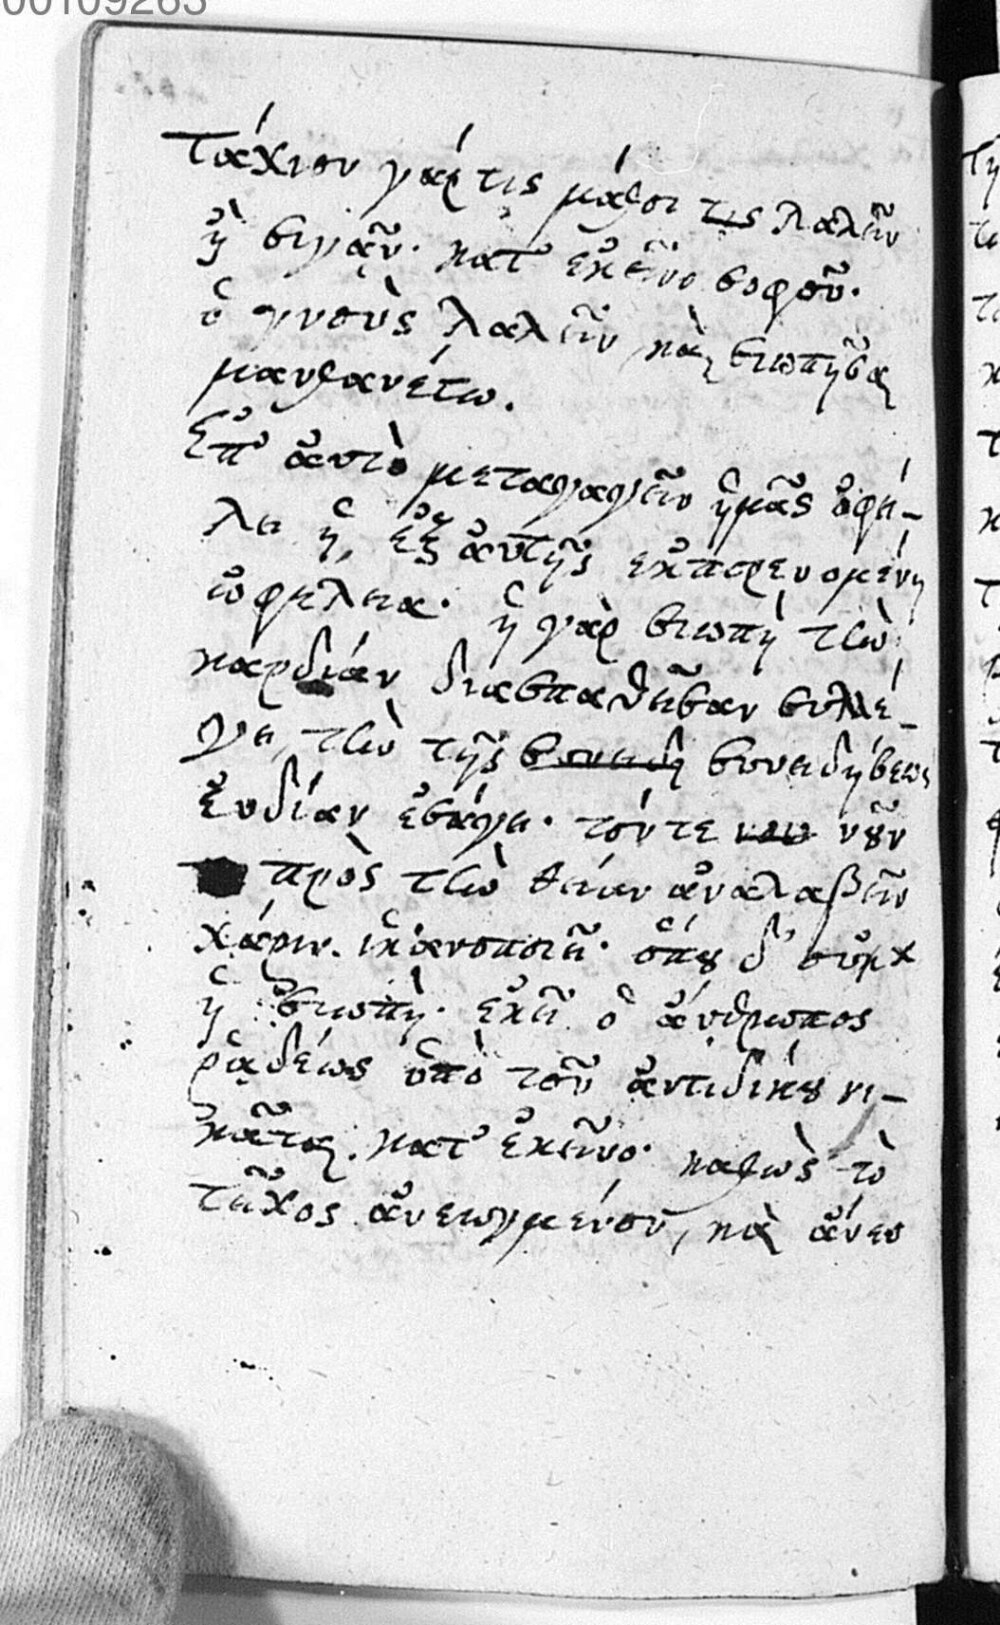 00109263
Τάχιον γάρ τις μάθοι τις λαλεῖν
ἢ σιγᾶν· κατ' ἐκεῖνο σοφοῦ·
ὁ γνοὺς λαλεῖν, καὶ σιωπῆσαι
μανθανέτω.
Ἐπ' αὐτὸ μεταγαγεῖν ἡμᾶς ὀφεί-
λει ἡ, ἐξ αὐτῆς ἐκπορευομένη
ὠφέλεια· ἡ γὰρ σιωπὴ τὴν
καρδίαν διασπαθεῖσαν συλλέ-
γει, τὴν τῆς συνειδη συνειδήσεως
εὐδίαν εἰσάγει· τόν τε νουν νοῦν
πρὸς τὴν θείαν ἀναλαβεῖν
χάριν. ἱκανοποιεῖ· ὅπου δ' οὐκ
ἡ σιωπὴ· ἐκεῖ ὁ ἄνθρωπος
ῥᾳδίως ὑπὸ τοῦ ἀντιδίκου νι-
κᾶται. κατ' ἐκεῖνο· καθὼς τὸ
τεῖχος ἀνεωγμένον, καὶ ἄνευ